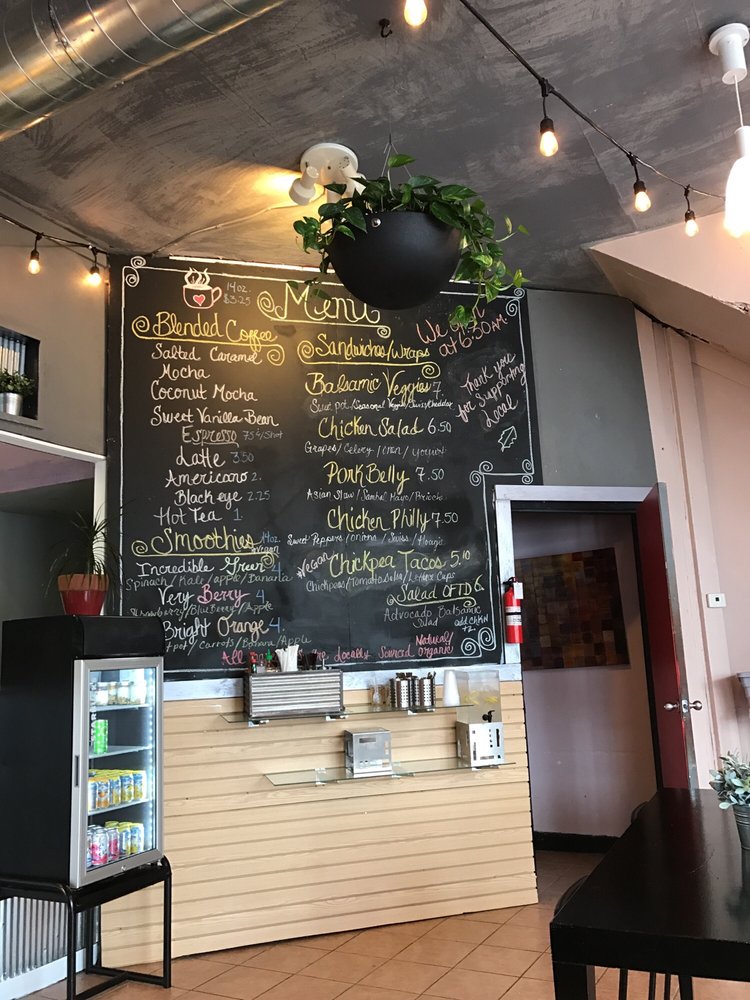 14oz.
$3.25
Menu
Blended Coffee
Salted Caramel
Mocha
Coconut Mocha
Sweet Vanilla Bean
Espresso 75¢/Shot
Latte 3.50
Americano 2.
Black eye 2.25
Hot Tea 1
Smoothies 14oz.
Vegan
Incredible Green 4.
Spinach/Kale/apple/Banana
Very Berry 4.
Strawberry/BlueBerry/Apple
Bright Orange 4.
pot/Carrots/Banana/Apple
Sandwiches/Wraps
Balsamic Veggies 7.
Sweet pot/Seasonal Veggies/Swiss/Cheddar
Chicken Salad 6.50
Grapes/Celery/Onion/yogurt
Pork Belly 7.50
Asian Slaw/Sambal Mayo/Brioche
Chicken Philly 7.50
Sweet Peppers/Onions/Swiss/Hoagie
Vegan
Chickpea Tacos 5.10
Chickpeas/Tomato Salsa/Lettuce Cups
Salad OFTD 6.
Advocado Balsamic
Salad
add CHKN
+2.
All Locally Sourced
Natural/
organic
We open
at 6:30AM
Thank you
for Supporting
Local